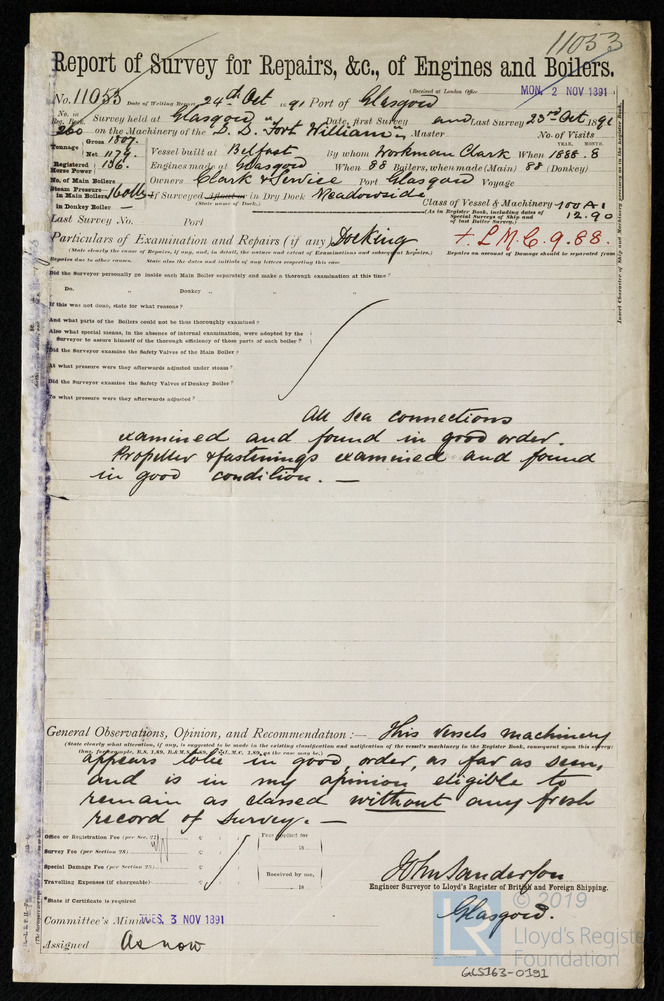 11053
Report of Survey for Repairs, &c., of Engines and Boilers.
(Received at London Office MON. 2 NOV 1891)
No. 11053 Date of Writing Report 24th Oct 1891 Port of Glasgow
No. in Reg. Book. Survey held at Glasgow Date, first Survey and Last Survey 23rd Oct 1891
260 on the Machinery of the S. S. "Fort William" Master No. of Visits
Tonnage Gross 1807. Net 1179. Vessel built at Belfast By whom Workman Clark When 1888. 8 YEAR. MONTH.
Registered Horse Power 136. Engines made at Glasgow When 88 Boilers, when made (Main) 88 (Donkey)
No. of Main Boilers Owners Clark & Service Port Glasgow Voyage
Steam Pressure in Main Boilers 160 lbs If Surveyed Afloat or in Dry Dock Meadowside
(State name of Dock.)
in Donkey Boiler — Class of Vessel & Machinery 100 A1
(As in Register Book, including dates of Special Surveys of Ship and of last Boiler Survey.) 12.90
Last Survey No. Port
Particulars of Examination and Repairs (if any) Docking + L M C. 9. 88.
(State clearly the cause of Repairs, if any, and, in detail, the nature and extent of Examinations and subsequent Repairs.) Repairs on account of Damage should be separated from
Repairs due to other causes. State also the dates and initials of any letters respecting this case
Did the Surveyor personally go inside each Main Boiler separately and make a thorough examination at this time?
Do. " Donkey " " "
If this was not done, state for what reasons?
And what parts of the Boilers could not be thus thoroughly examined?
Also what special means, in the absence of internal examination, were adopted by the
Surveyor to assure himself of the thorough efficiency of those parts of each boiler?
Did the Surveyor examine the Safety Valves of the Main Boiler?
At what pressure were they afterwards adjusted under steam?
Did the Surveyor examine the Safety Valves of Donkey Boiler?
To what pressure were they afterwards adjusted?
All sea connections
examined and found in good order.
Propeller & fastenings examined and found
in good condition. —
General Observations, Opinion, and Recommendation:— This vessels machinery
(State clearly what alteration, if any, is suggested to be made in the existing classification and notification of the vessel's machinery in the Register Book, consequent upon this survey:
thus, for example, B.S. 1,89, B.&M.S. 1,89, L.M.C. 1,89, as the case may be.)
appears to be in good order, as far as seen,
and is in my opinion eligible to
remain as classed without any fresh
record of survey. —
Office or Registration Fee (per Sec. 27) £ Fees applied for
Survey Fee (per Section 28) £ 18
Special Damage Fee (per Section 28) £ Received by me,
Travelling Expenses (if chargeable) £ 18
*State if Certificate is required
John Sanderson
Engineer Surveyor to Lloyd's Register of British and Foreign Shipping.
Glasgow.
Committee's Minute TUES. 3 NOV 1891
Assigned As now
LR
© 2019
Lloyd's Register
Foundation
GLS163-0191